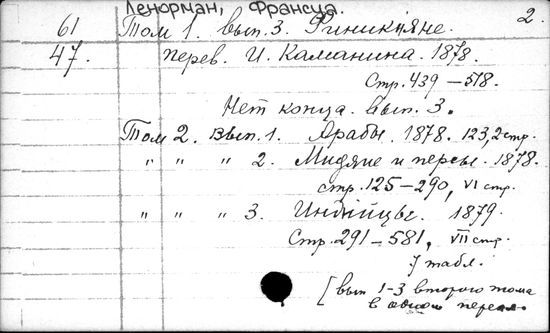 Ленорман, Франсуа.
2.
61 Том 1. Вып. 3. Финикияне.
47. перев. И. Каманина. 1878.
Стр. 439 – 518.
Нет конца вып. 3.
Том 2. Вып. 1. Арабы. 1878. 123, 2 стр.
" " " 2. Мидяне и персы. 1878.
стр. 125 – 290, VI стр.
" " " 3. Индийцы. 1879.
Стр. 291 – 581, VII стр.
7 табл.
[вып 1-3 второго тома
в одном перепл.